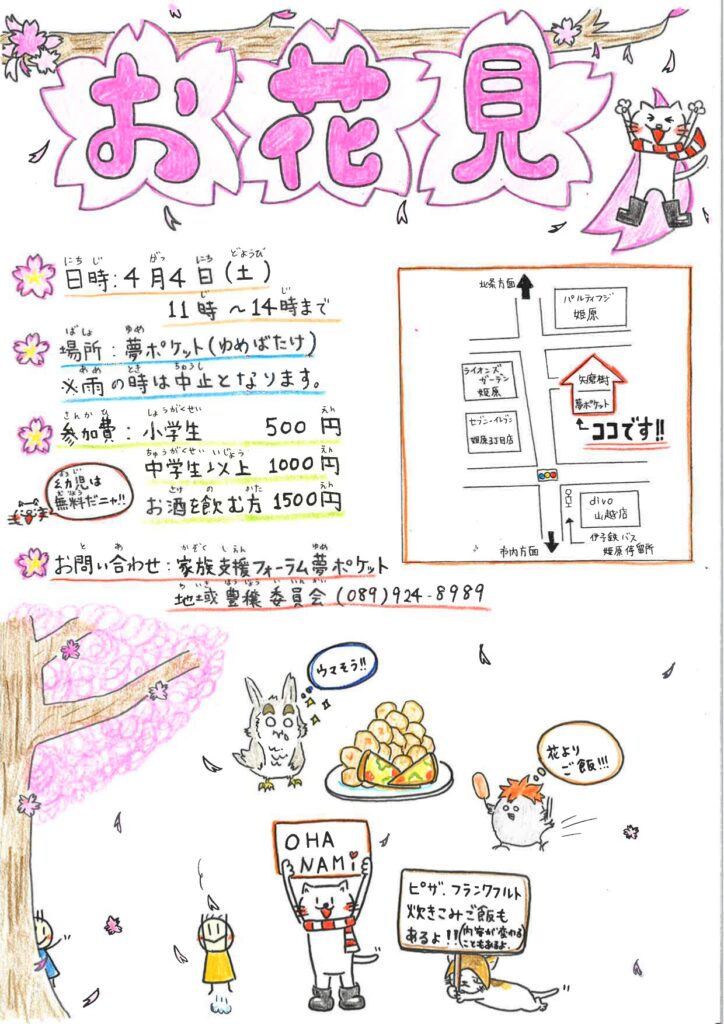 お花見
日時：4月4日(土)
11時〜14時まで
場所：夢ポケット(ゆめばたけ)
※雨の時は中止となります。
参加費：小学生 500円
中学生以上 1000円
お酒を飲む方 1500円
幼児は
無料だニャ!!
お問い合わせ：家族支援フォーラム夢ポケット
地域豊穣委員会 (089)924-8989
北条方面
パルティフジ
姫原
ライオンズ
ガーデン
姫原
セブン-イレブン
姫原3丁目店
夢ポケット
ココです!!
divo
山越店
伊予鉄バス
姫原停留所
市内方面
ウマそう!!
花より
ご飯!!!
OHA
NAMi
ピザ、フランクフルト
炊きこみご飯も
あるよ!!(内容が変わる
こともあるよ。)